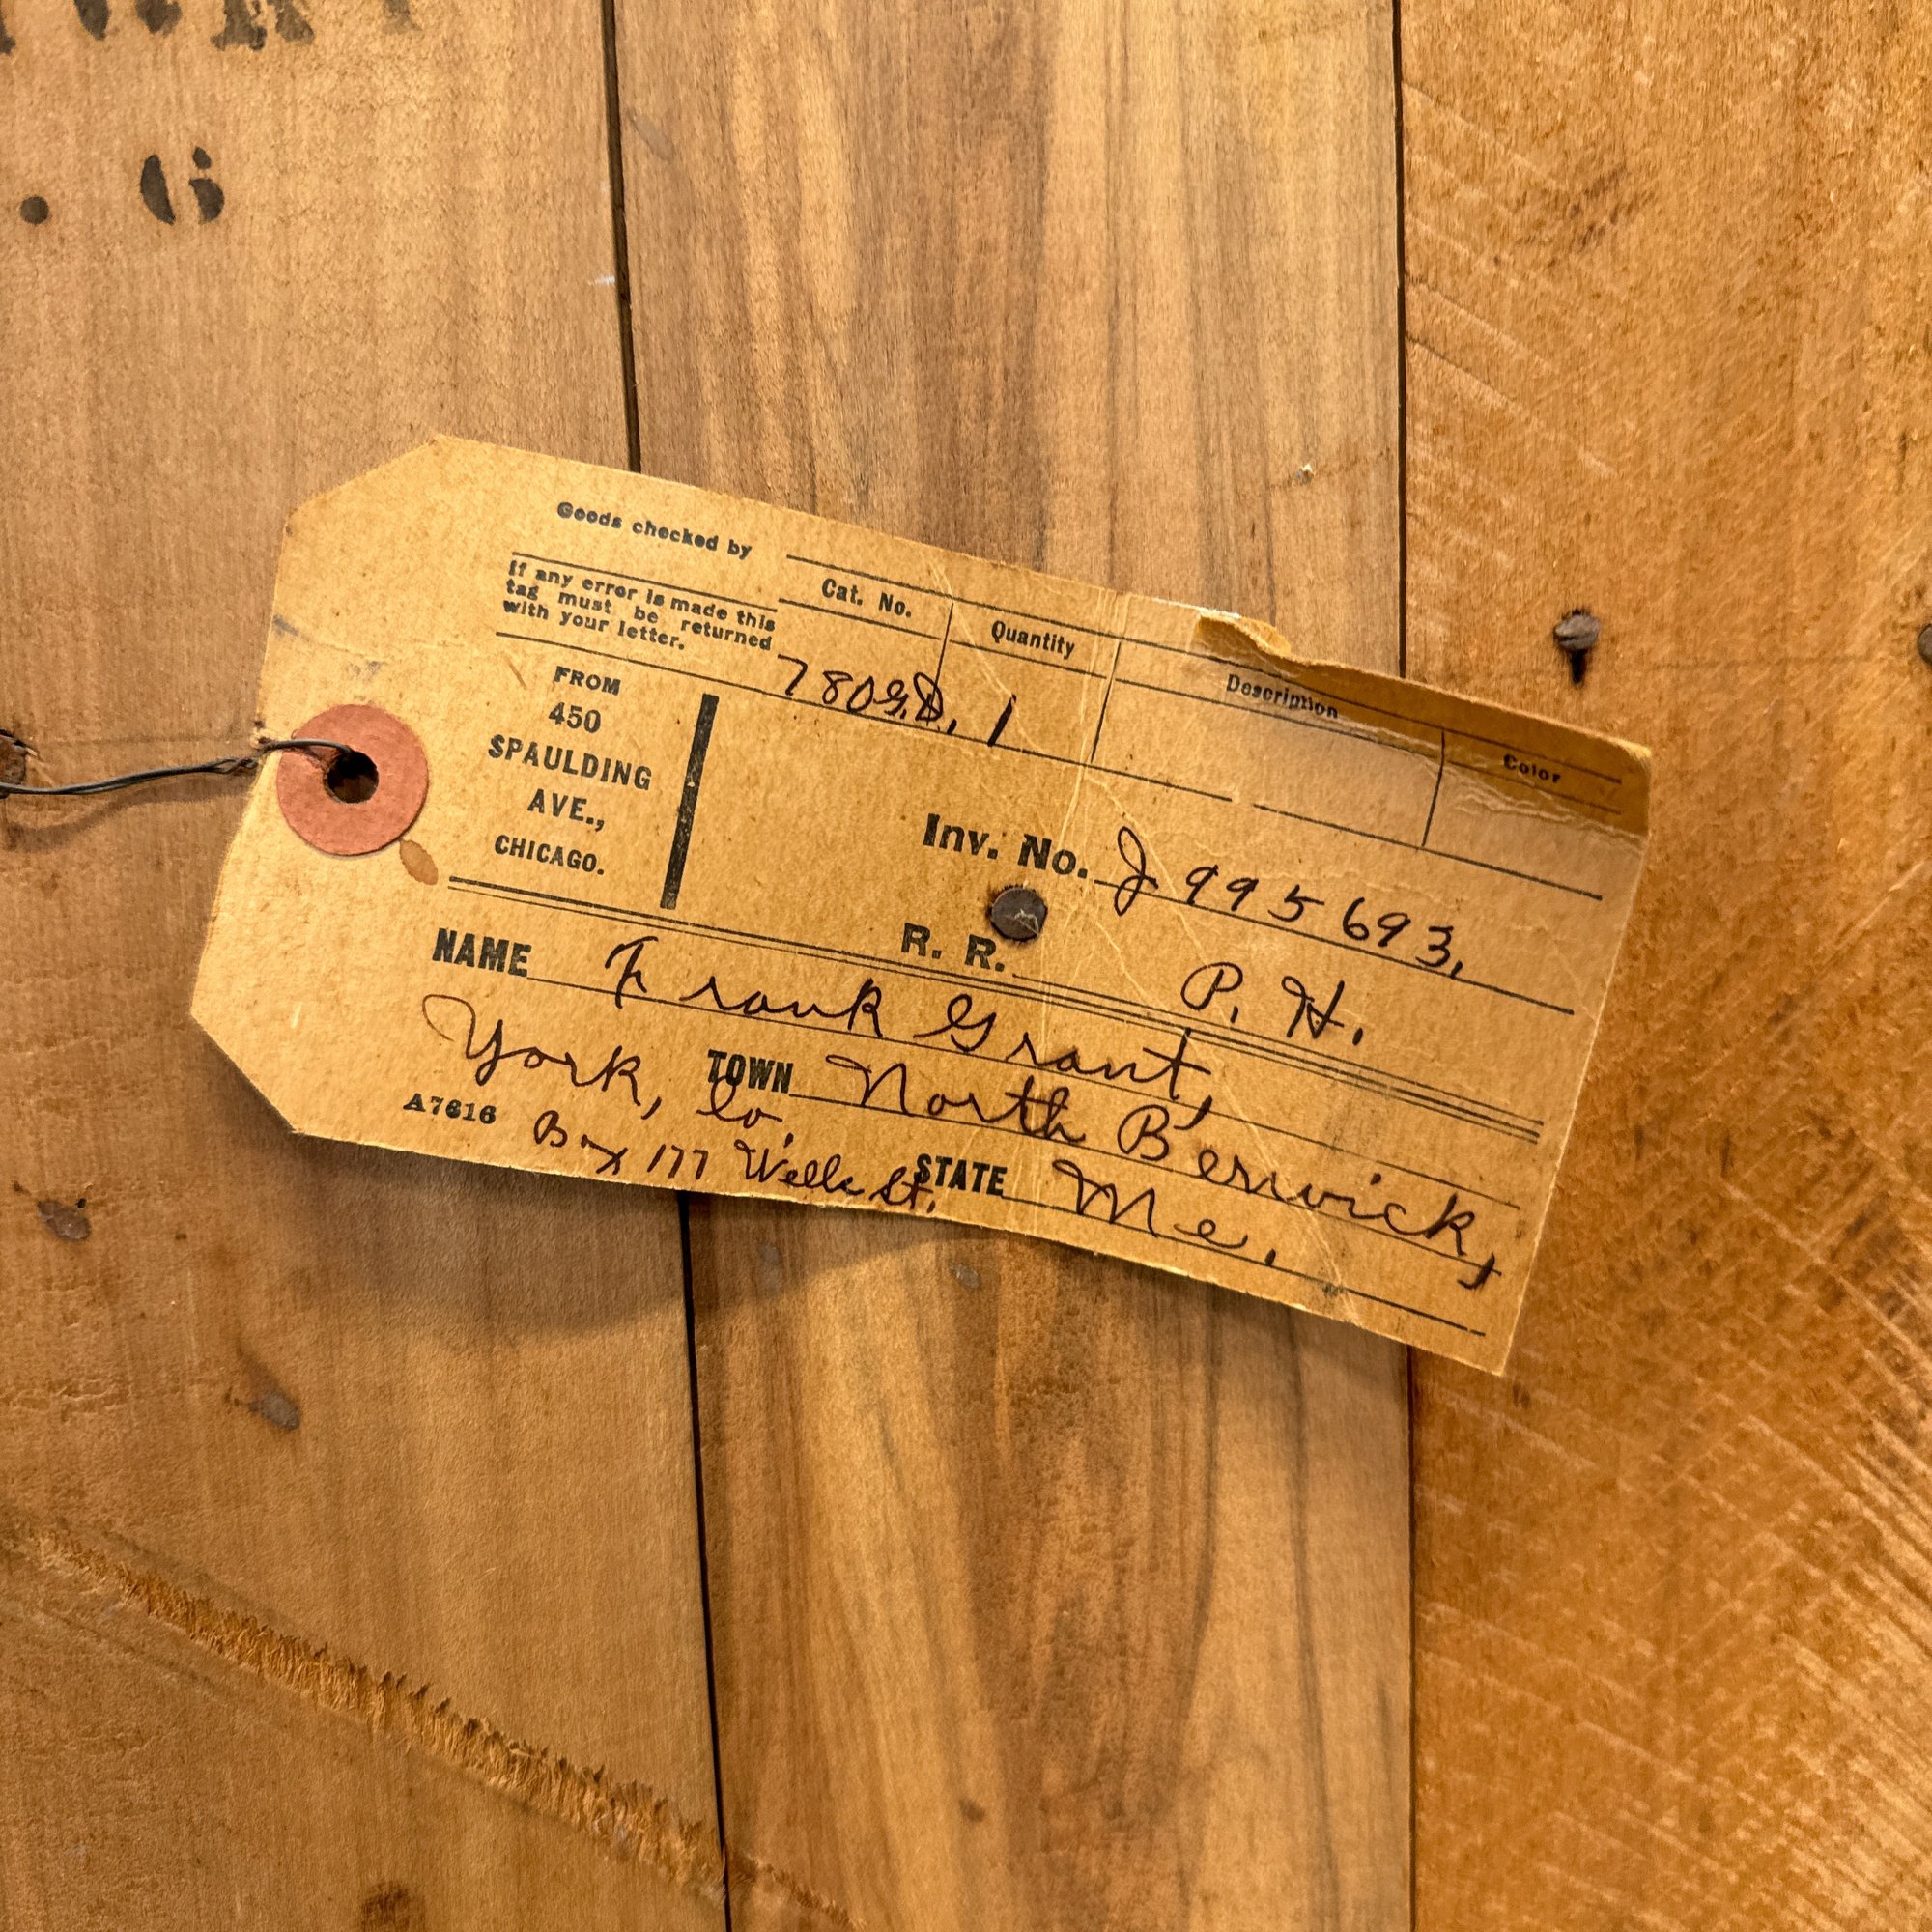 . 6
Goods checked by
If any error is made this
tag must be returned
with your letter.
Cat. No. Quantity Description Color
780G.D. 1
FROM
450
SPAULDING
AVE.,
CHICAGO.
Inv. No. J995693.
R. R. P. H.
NAME Frank Grant,
TOWN North Berwick,
York, Co.
STATE Me.
A7616
Box 177 Wells St.